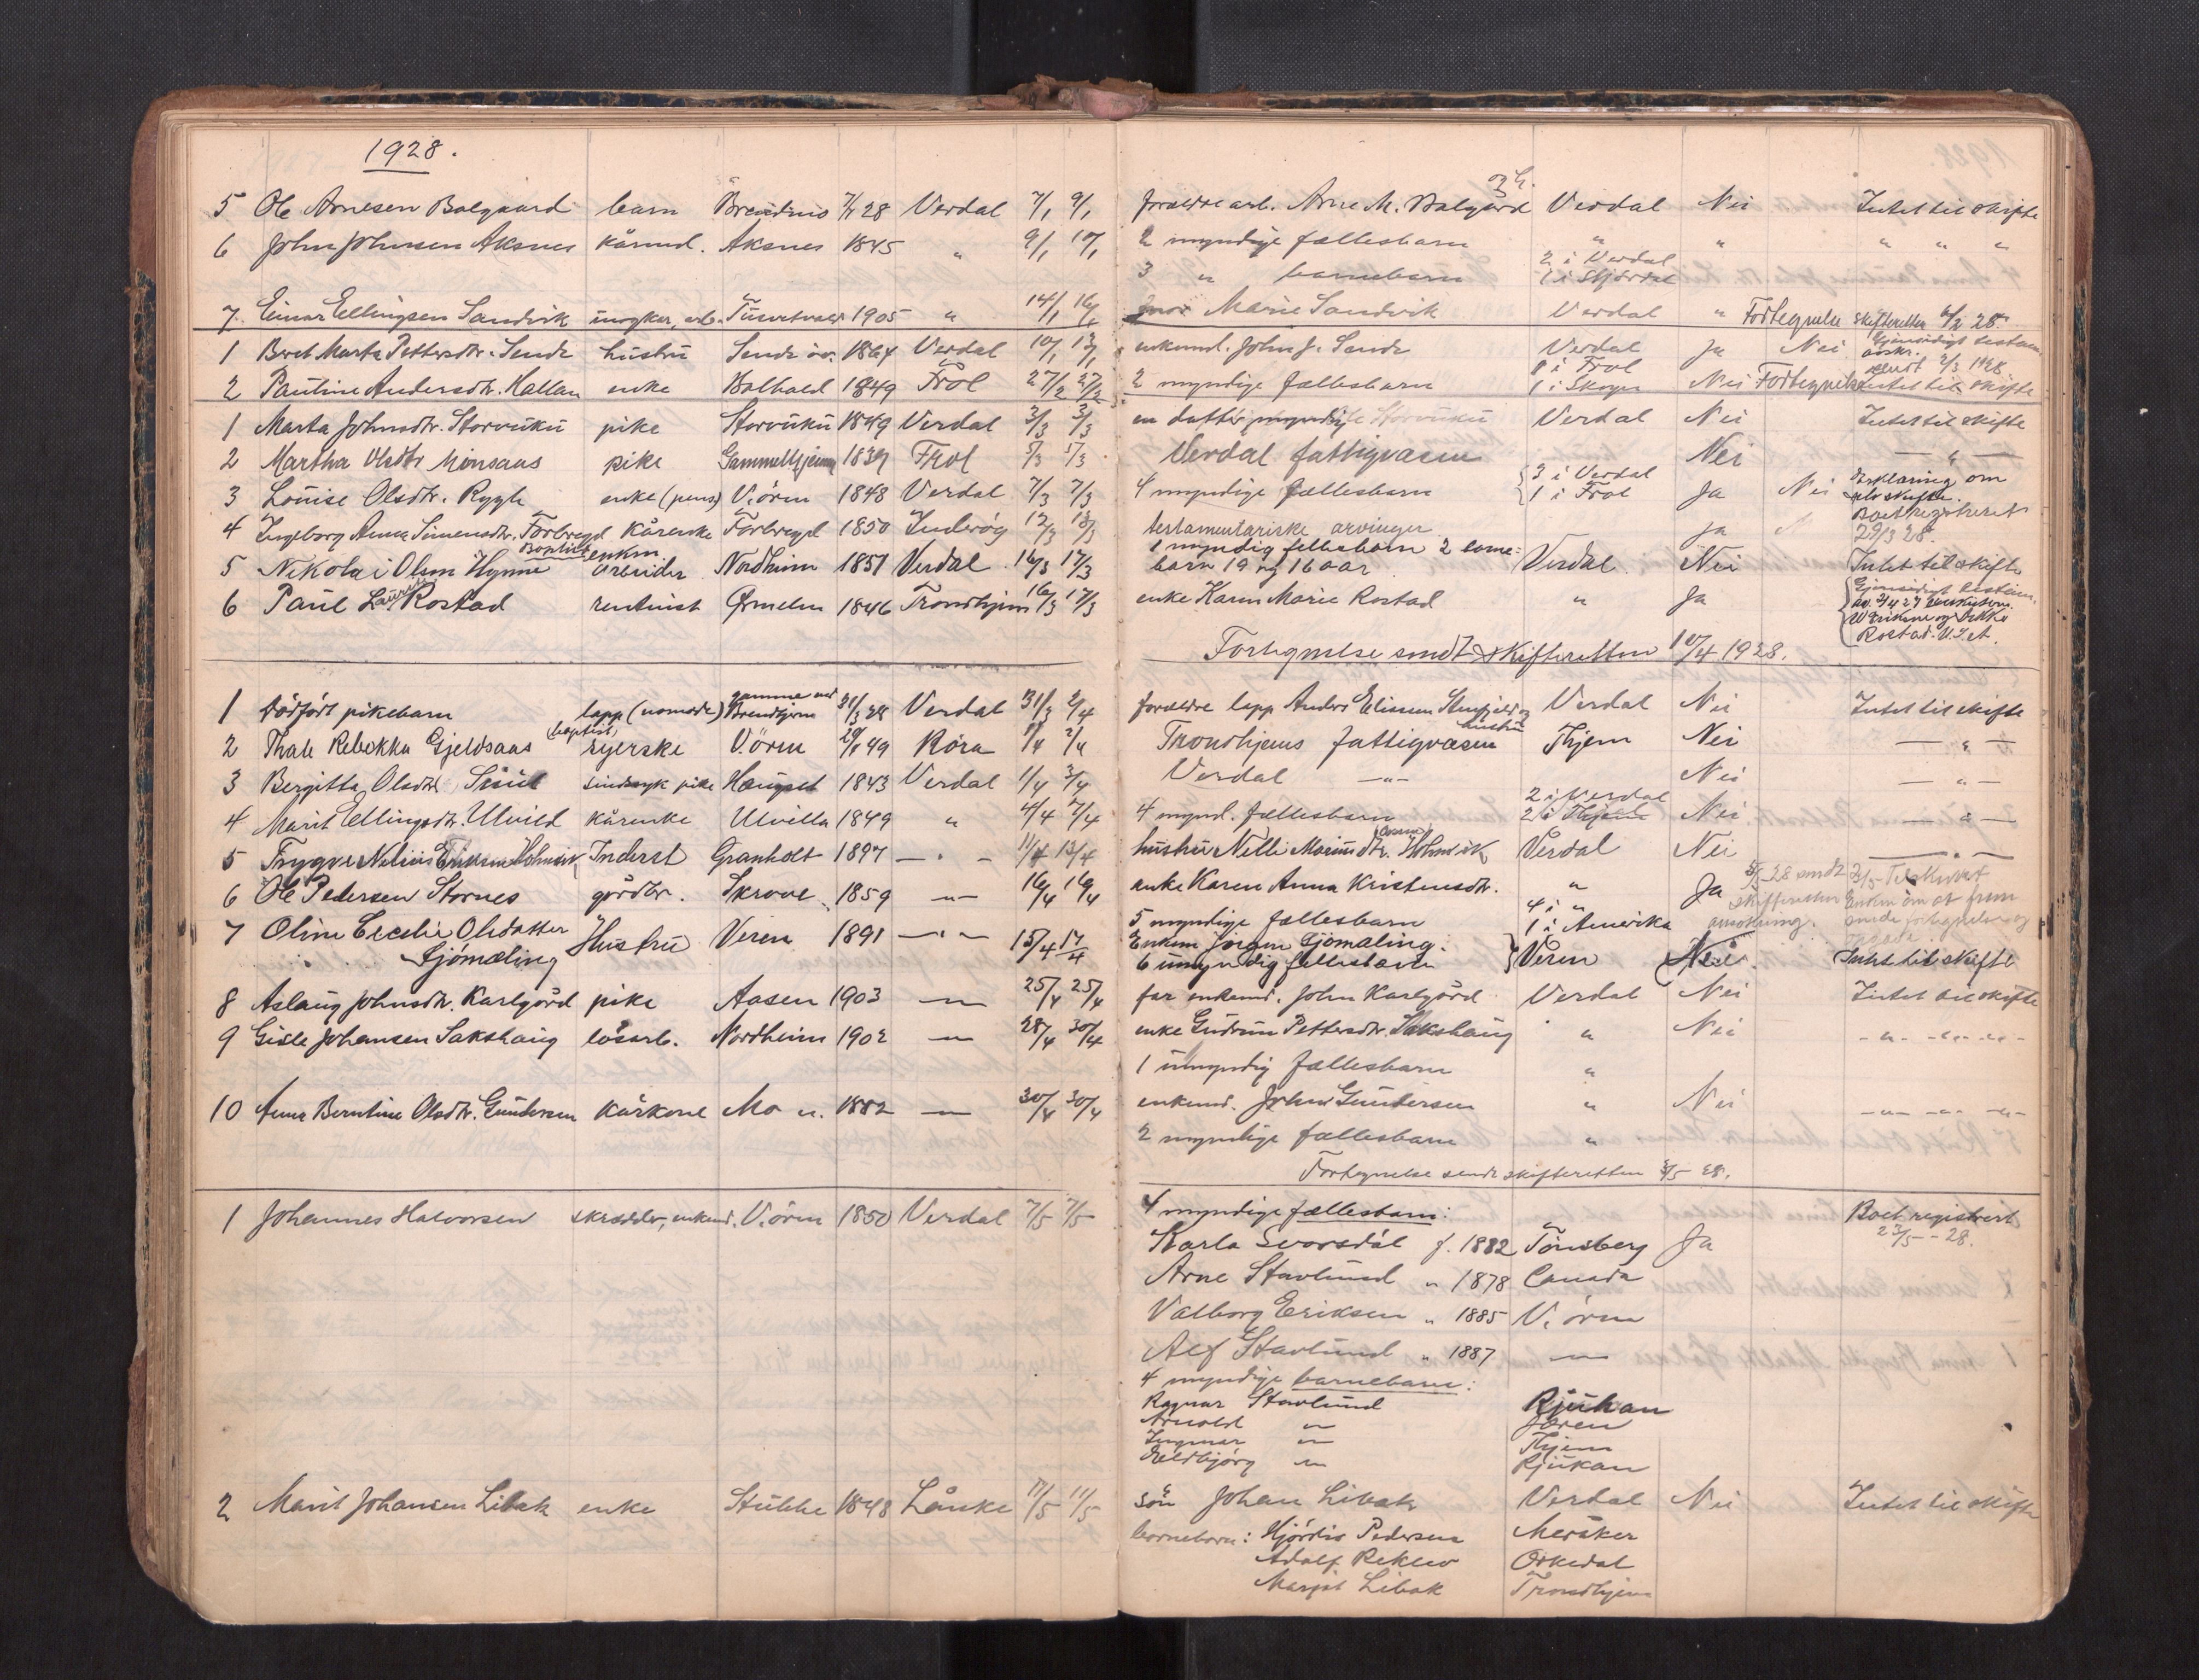 1928.
5 Ole Arnesen Balgaard barn Breidnis 7/1 28 Verdal 7/1 9/1 foreldre arb. Arne M. Balgård og h. Verdal Nei Intet til skifte
6 John Johnsen Aksnes kårmd. Aksnes 1845 " 9/1 10/1 2 myndige fællesbarn " " " " "
3 " barnebarn 2 i Verdal 1 i Stjørdal
7 Einar Ellingsen Sandvik ungkar, arb. 1905 " 14/1 16/1 mor Marie Sandvik Verdal " Fortegnelse skifteretten 6/2 28.
1 Beret Marta Pettersdtr. Sende hustru Sende øv. 1864 Verdal 10/2 13/2 enkemd. John J. Sende Verdal Ja Nei Gjensidigt testam. avskr. sendt 2/3 1928
2 Pauline Andersdtr. Hallan enke Halbald 1849 Frol 27/2 27/2 2 myndige fællesbarn 1 i Frol 1 i Skogn Nei Fortegnelse Intet til skifte
1 Marta Johnsdtr. Storvuku pike Storvuku 1849 Verdal 3/3 3/3 en datter Storvuku Verdal Nei Intet til skifte
2 Martha Olsdtr Minsaas pike Gammelhjem 1839 Frol 5/3 17/3 Verdal fattigvæsen Nei — " —
3 Louise Olsdtr. Rygh enke (pens) V.øren 1848 Verdal 7/3 7/3 4 myndige fællesbarn 3 i Verdal 1 i Frol Ja Nei Erklæring om selvskifte.
4 Ingeborg Anna Simensdtr. Forbregd kårenke Forbregd 1850 Inderøy 12/3 18/3 testamentariske arvinger Ja Boet registreret 29/3 28.
5 Nikolai Olsen Hynne Baptist enkm. Arbeider Nordheim 1851 Verdal 16/3 17/3 1 myndig fellesbarn 2 barnebarn 19 og 16 aar Verdal Nei Intet til skifte
6 Paul Laurits Rostad rentenist Ørmelen 1846 Trondhjem 16/3 17/3 enke Karen Marie Rostad " Ja Gjensidigt testam. av 2/4 27
Rostad. U.S.et.
Fortegnelse sendt skifteretten 10/4 1928.
1 Dødfødt pikebarn lapp (nomade) gamme ved 31/3 28 Verdal 31/3 2/4 forældre lapp Anders Elissen Stenfjeld og hustru Verdal Nei Intet til skifte
2 Thale Rebekka Gjeldsaas (baptist) syerske V.øren 29/1 49 Røra 1/4 2/4 Trondhjems fattigvæsen Thjem Nei — " —
3 Bergitta Olsdtr. sindssyk pike Haugset 1843 Verdal 1/4 3/4 Verdal — " — Nei — " —
4 Marit Ellingsdtr. Ulvild kårenke Ulvilla 1849 " 4/4 7/4 4 mynd. fællesbarn 2 i Verdal 2 i Thjem Nei — " —
5 Trygve Nelius Eriksen Holmvik Inderst Granholt 1897 — " — 11/4 13/4 hustru Nelli Mariusdtr. Holmvik Verdal Nei — " —
6 Ole Pedersen Stornes gårdbr. Skrove 1859 — " — 16/4 16/4 enke Karen Anna Kristensdtr. " Ja 5/5 28 sendt skifteretten anvisning. 2/5 Tilskrevet Enken om at frem
5 myndige fællesbarn 4 i " 1 i Amerika
7 Oline Cecelie Olsdatter Gjømæling Hustru Veren 1891 — " — 15/4 17/4 Enkem Jørgen Gjømæling. Veren Nei Intet til skifte
6 umyndig fellesbarn
8 Aslaug Johnsdtr. Karlgård pike Aasen 1903 — " — 25/4 25/4 far enkemd. John Karlgård Verdal Nei Intet til skifte
9 Gisle Johansen Sakshaug løsarb. Nordheim 1902 — " — 28/4 30/4 enke Gudrun Pettersdtr. Sakshaug " Nei - " - - " - - " -
1 umyndig fællesbarn "
10 Anna Berntine Olsdtr. Gundersen kårkone Mo n. 1882 — " — 30/4 30/4 enkemd. John Gundersen " Nei - " - - " - - " -
2 myndige fællesbarn "
Fortegnelse sendt skifteretten 5/5 28.
1 Johannes Halvorsen skrædder, enkemd. V.øren 1850 Verdal 7/5 7/5 4 myndige fællesbarn: Boet registrert 23/5 - 28.
Karla Svorsdal f. 1882 Tønsberg Ja
Arne Stavlund " 1878 Canada
Valborg Eriksen " 1885 V.øren
Alf Stavlund " 1887 — " —
4 myndige barnebarn:
Ragnar Stavlund Rjukan
Arnold — " — Jæren
Ingmar — " — Thjem
Heldbjørg — " — Rjukan
2 Marit Johansen Libak enke Stubbe 1848 Lånke 11/5 11/5 søn Johan Libak Verdal Nei Intet til skifte
barnebarn: Hjørdis Pedersen Meråker
Adolf Reklev Orkedal
Margit Libak Trondhjem